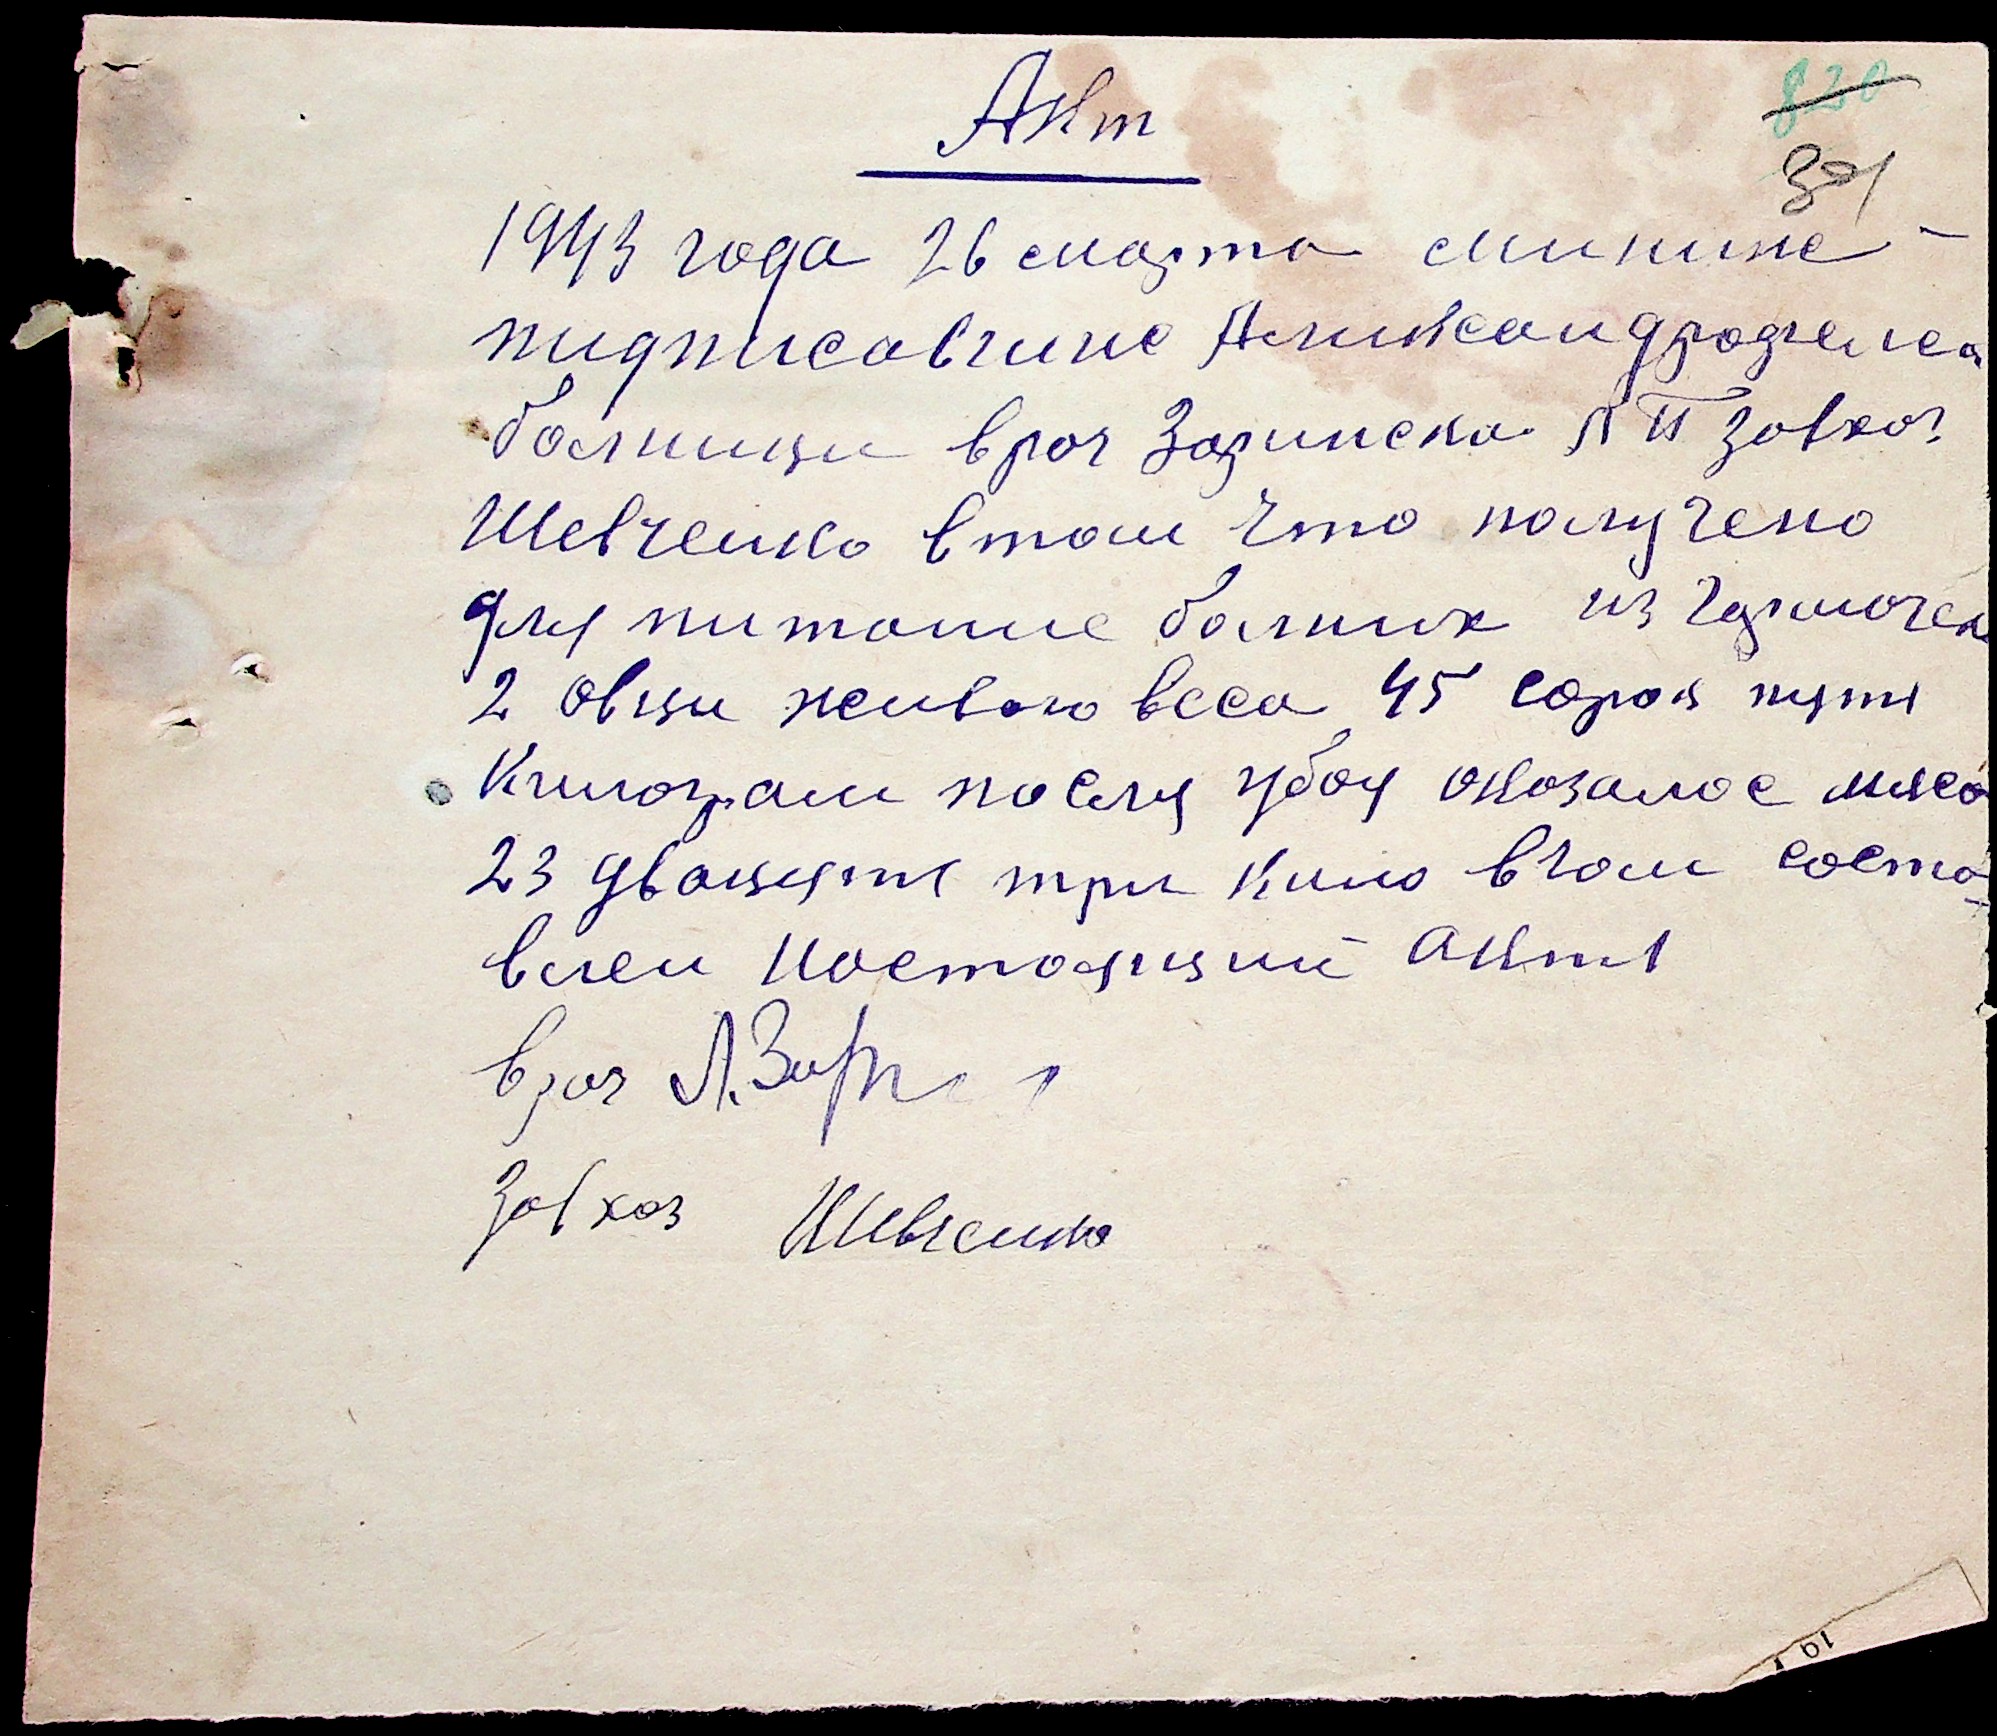 Акт
820
391
1943 года 26 марта мининс-
пидписавчине Аликсандродарска
болници врач Заринска Л П завхоз
Шевченко в том что получено
для питание болних из
2 овци живого веса 45 сорок пять
Килограм посля убоя оказалос мясо
23 двацять три кило вчом соста-
влен Настоящий Акт
врач Л. Зар
завхоз Шевченко
19